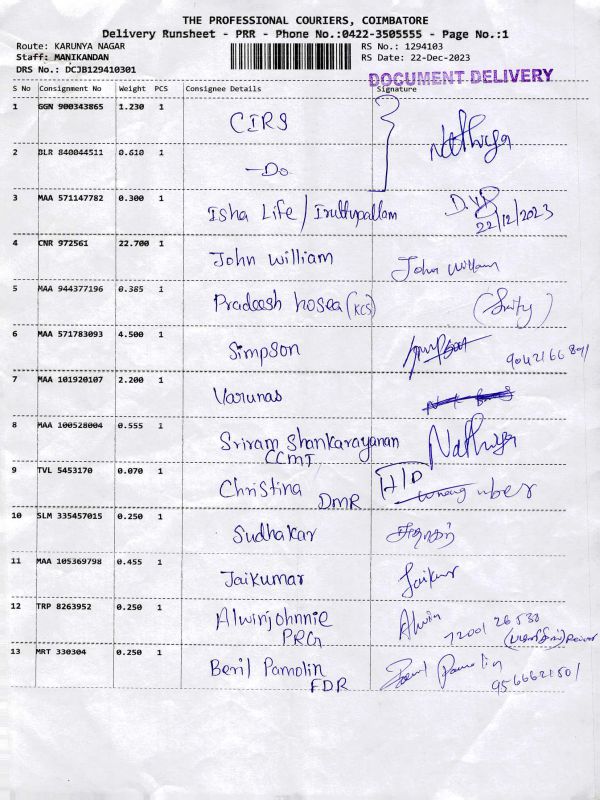 THE PROFESSIONAL COURIERS, COIMBATORE
Delivery Runsheet - PRR - Phone No.:0422-3505555 - Page No.:1
Route: KARUNYA NAGAR RS No.: 1294103
Staff: MANIKANDAN RS Date: 22-Dec-2023
DRS No.: DCJB129410301
DOCUMENT DELIVERY
S No Consignment No Weight PCS Consignee Details Signature
1 GGN 900343865 1.230 1 CIRS Nathiya
2 BLR 840044511 0.610 1 -Do
3 MAA 571147782 0.300 1 Isha Life / Iruttupallam
22/12/2023
4 CNR 972561 22.700 1 John William John William
5 MAA 944377196 0.385 1 Pradeesh hosea (KCS)
6 MAA 571783093 4.500 1 Simpson
7 MAA 101920107 2.200 1 Varunas
8 MAA 100528004 0.555 1 Sriram Shankarayanan Nathiya
CCMT
9 TVL 5453170 0.070 1 Christina H/D
DMR
10 SLM 335457015 0.250 1 Sudhakar சுதாகர்
11 MAA 105369798 0.455 1 Jaikumar Jaikur
12 TRP 8263952 0.250 1 Alwinjohnnie Alwin
PRG
13 MRT 330304 0.250 1 Beril Pamolin Beril Pamolin
FDR 9566621501